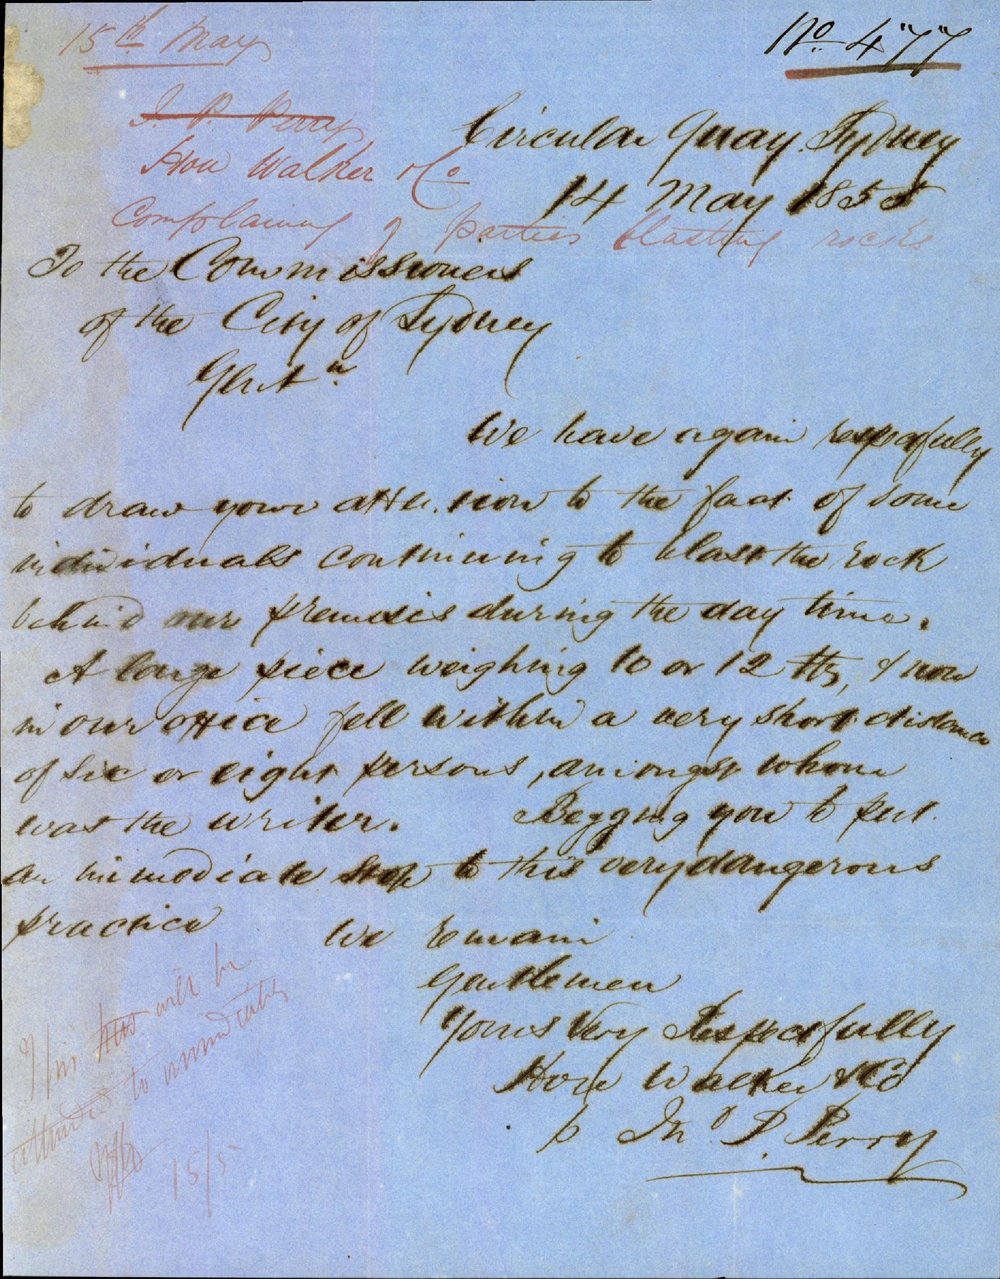 15th May
No. 477
J. P. Perry
Hon Walker & Co
Complaining of parties blasting rocks
Circular Quay. Sydney
14 May 1855
To the Commissioners
of the City of Sydney
Gentn
We have again respecfully
to draw your attention to the fact of some
individuals continuing to blast the rock
behind our premises during the day time.
A large piece weighing 10 or 12 lbs, & now
in our office fell within a very short distance
of six or eight persons, amongst whom
was the writer. Begging you to put
an immediate stop to this very dangerous
practice
We remain
Gentlemen
Yours Very Respecfully
Hore Walker & Co
p Jno. P. Perry
This has will be
attended to immediately
15/5